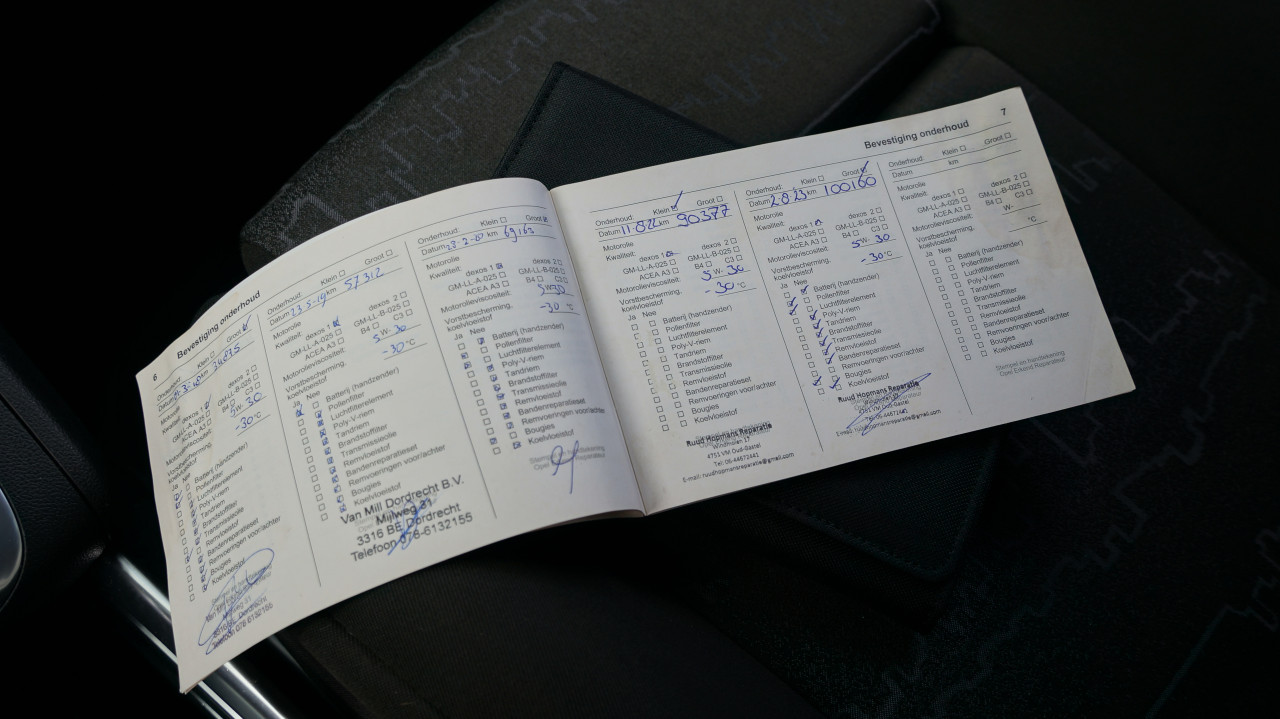 6
Bevestiging onderhoud
Onderhoud: Klein Groot
Datum km 34875
Motorolie
Kwaliteit: dexos 1 dexos 2
GM-LL-A-025 GM-LL-B-025
ACEA A3 B4 C3
Motorolieviscositeit: 5W-30
Vorstbescherming,
koelvloeistof -30°C
Ja Nee
Batterij (handzender)
Pollenfilter
Luchtfilterelement
Poly-V-riem
Tandriem
Brandstoffilter
Transmissieolie
Remvloeistof
Bandenreparatieset
Remvoeringen voor/achter
Bougies
Koelvloeistof
Mijlweg 31
3316 BE Dordrecht
Telefoon 078-6132155
Onderhoud: Klein Groot
Datum 23-5-19 km 57312
Motorolie
Kwaliteit: dexos 1 dexos 2
GM-LL-A-025 GM-LL-B-025
ACEA A3 B4 C3
Motorolieviscositeit: 5W-30
Vorstbescherming,
koelvloeistof -30°C
Ja Nee
Batterij (handzender)
Pollenfilter
Luchtfilterelement
Poly-V-riem
Tandriem
Brandstoffilter
Transmissieolie
Remvloeistof
Bandenreparatieset
Remvoeringen voor/achter
Bougies
Koelvloeistof
Van Mill Dordrecht B.V.
Mijlweg 31
3316 BE Dordrecht
Telefoon 078-6132155
Onderhoud: Klein Groot
Datum km 69163
Motorolie
Kwaliteit: dexos 1 dexos 2
GM-LL-A-025 GM-LL-B-025
ACEA A3 B4 C3
Motorolieviscositeit: 5W30
Vorstbescherming,
koelvloeistof -30°C
Ja Nee
Batterij (handzender)
Pollenfilter
Luchtfilterelement
Poly-V-riem
Tandriem
Brandstoffilter
Transmissieolie
Remvloeistof
Bandenreparatieset
Remvoeringen voor/achter
Bougies
Koelvloeistof
Stempel en handtekening
Opel Reparateur
Bevestiging onderhoud
7
Onderhoud: Klein Groot
Datum 11-8-22 km 90377
Motorolie
Kwaliteit: dexos 1 dexos 2
GM-LL-A-025 GM-LL-B-025
ACEA A3 B4 C3
Motorolieviscositeit: 5W-30
Vorstbescherming,
koelvloeistof -30°C
Ja Nee
Batterij (handzender)
Pollenfilter
Luchtfilterelement
Poly-V-riem
Tandriem
Brandstoffilter
Transmissieolie
Remvloeistof
Bandenreparatieset
Remvoeringen voor/achter
Bougies
Koelvloeistof
Ruud Hopmans Reparatie
Windmolen 17
4751 VM Oud-Gastel
Tel: 06-44672441
E-mail: ruudhopmansreparatie@gmail.com
Onderhoud: Klein Groot
Datum 2-8-23 km 100160
Motorolie
Kwaliteit: dexos 1 dexos 2
GM-LL-A-025 GM-LL-B-025
ACEA A3 B4 C3
Motorolieviscositeit: 5W-30
Vorstbescherming,
koelvloeistof -30°C
Ja Nee
Batterij (handzender)
Pollenfilter
Luchtfilterelement
Poly-V-riem
Tandriem
Brandstoffilter
Transmissieolie
Remvloeistof
Bandenreparatieset
Remvoeringen voor/achter
Bougies
Koelvloeistof
Ruud Hopmans Reparatie
Windmolen 17
4751 VM Oud-Gastel
Tel: 06-44672441
E-mail: ruudhopmansreparatie@gmail.com
Onderhoud: Klein Groot
Datum km
Motorolie
Kwaliteit: dexos 1 dexos 2
GM-LL-A-025 GM-LL-B-025
ACEA A3 B4 C3
Motorolieviscositeit: W-
Vorstbescherming,
koelvloeistof °C
Ja Nee
Batterij (handzender)
Pollenfilter
Luchtfilterelement
Poly-V-riem
Tandriem
Brandstoffilter
Transmissieolie
Remvloeistof
Bandenreparatieset
Remvoeringen voor/achter
Bougies
Koelvloeistof
Stempel en handtekening
Opel Erkend Reparateur